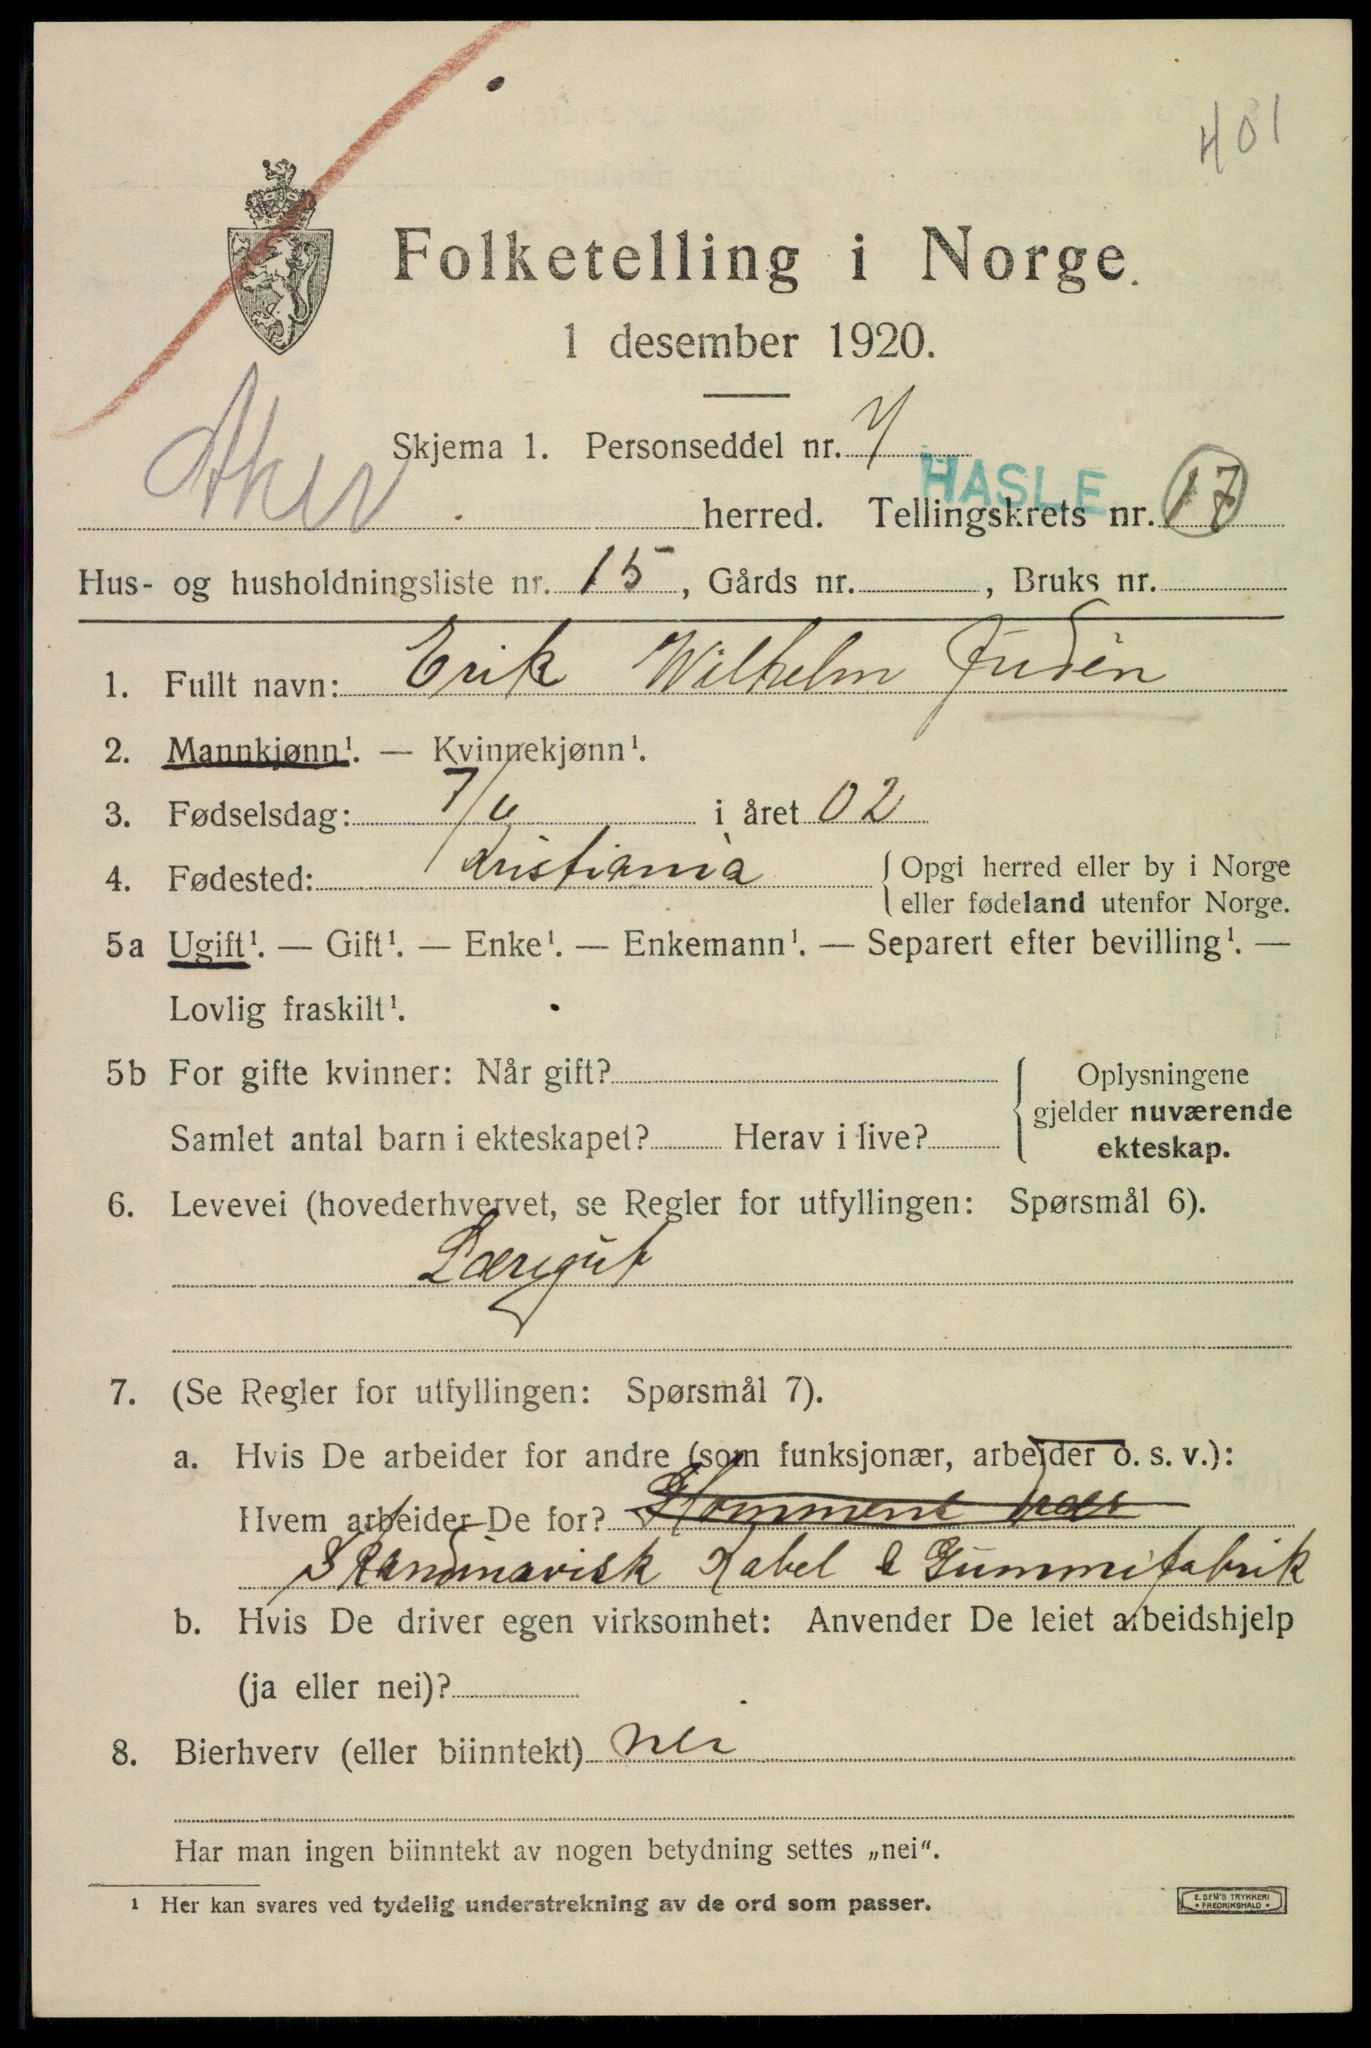 401
Folketelling i Norge.
1 desember 1920.
Skjema 1. Personseddel nr. 7
HASLE
Aker herred. Tellingskrets nr. 17
Hus- og husholdningsliste nr. 15, Gårds nr. , Bruks nr.
1. Fullt navn: Erik Wilhelm Judén
2. Mannkjønn¹. — Kvinnekjønn¹.
3. Fødselsdag: 7/6 i året 02
4. Fødested: Kristiania { Opgi herred eller by i Norge
eller fødeland utenfor Norge.
5a Ugift¹. — Gift¹. — Enke¹. — Enkemann¹. — Separert efter bevilling¹. —
Lovlig fraskilt¹.
5b For gifte kvinner: Når gift? { Oplysningene
gjelder nuværende
Samlet antal barn i ekteskapet? Herav i live? ekteskap.
6. Levevei (hovederhvervet, se Regler for utfyllingen: Spørsmål 6).
Læregut
7. (Se Regler for utfyllingen: Spørsmål 7).
a. Hvis De arbeider for andre (som funksjonær, arbeider o. s. v.):
Hvem arbeider De for?
Skandinavisk Kabel & Gummifabrik
b. Hvis De driver egen virksomhet: Anvender De leiet arbeidshjelp
(ja eller nei)?
8. Bierhverv (eller biinntekt) nei
Har man ingen biinntekt av nogen betydning settes „nei“.
¹ Her kan svares ved tydelig understrekning av de ord som passer.
E. SEM'S TRYKKERI
* FREDRIKSHALD *